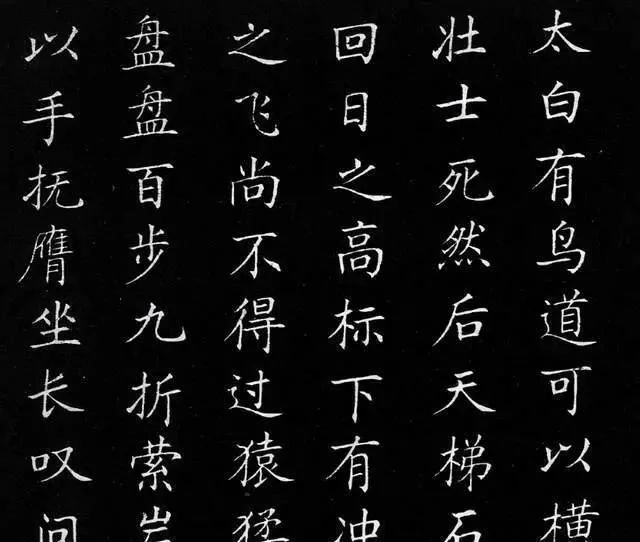 太白有鸟道可以横
壮士死然后天梯石
回日之高标下有冲
之飞尚不得过猿猱
盘盘百步九折萦岩
以手抚膺坐长叹问